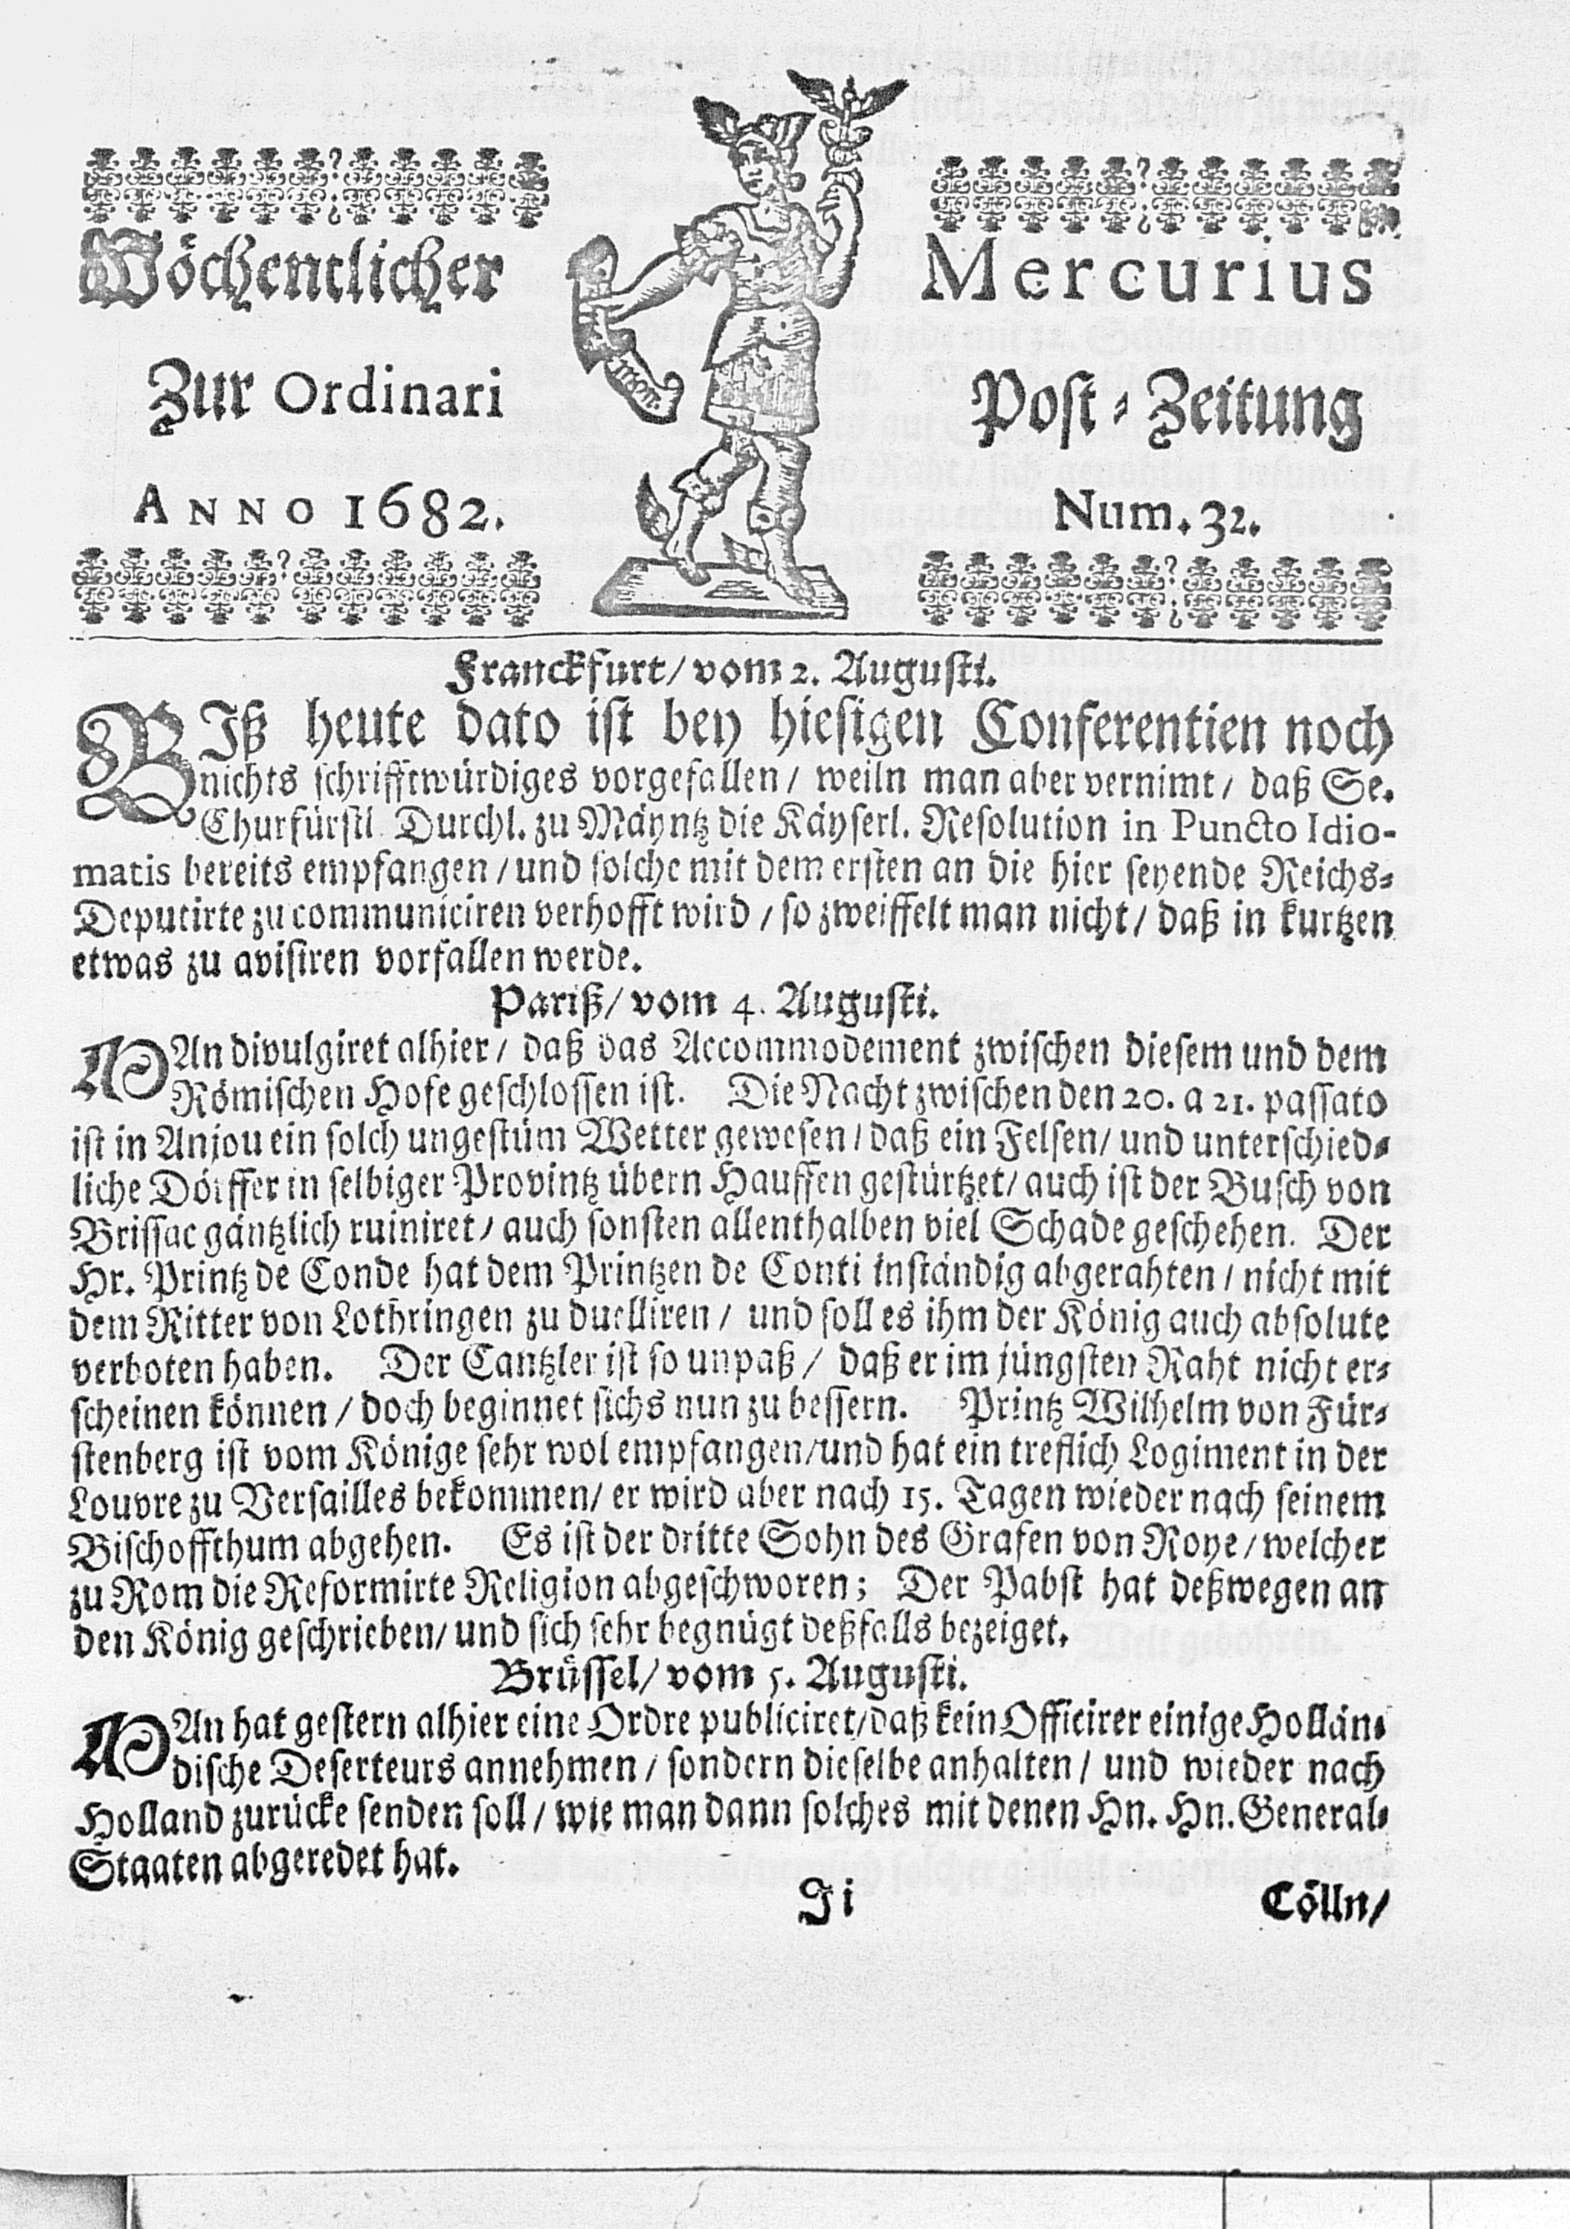 Wöchentlicher Mercurius
Zur Ordinari Post-Zeitung
ANNO 1682. Num. 32.
Franckfurt/ vom 2. Augusti.
BIß heute dato ist bey hiesigen Conferentien noch
nichts schrifftwürdiges vorgefallen/ weiln man aber vernimt/ daß Se.
Churfürstl. Durchl. zu Mäyntz die Käyserl. Resolution in Puncto Idio-
matis bereits empfangen/ und solche mit dem ersten an die hier seyende Reichs-
Deputirte zu communiciren verhofft wird/ so zweiffelt man nicht/ daß in kurtzen
etwas zu avisiren vorfallen werde.
Pariß/ vom 4. Augusti.
MAn divulgiret alhier/ daß das Accommodement zwischen diesem und dem
Römischen Hofe geschlossen ist. Die Nacht zwischen den 20. a 21. passato
ist in Anjou ein solch ungestüm Wetter gewesen/ daß ein Felsen/ und unterschied-
liche Dörffer in selbiger Provintz übern Hauffen gestürtzet/ auch ist der Busch von
Brissac gäntzlich ruiniret/ auch sonsten allenthalben viel Schade geschehen. Der
Hr. Printz de Conde hat dem Printzen de Conti inständig abgerahten/ nicht mit
dem Ritter von Lothringen zu duelliren/ und soll es ihm der König auch absolute
verboten haben. Der Cantzler ist so unpaß/ daß er im jüngsten Raht nicht er-
scheinen können/ doch beginnet sichs nun zu bessern. Printz Wilhelm von Für-
stenberg ist vom Könige sehr wol empfangen/und hat ein treflich Logiment in der
Louvre zu Versailles bekommen/ er wird aber nach 15. Tagen wieder nach seinem
Bischoffthum abgehen. Es ist der dritte Sohn des Grafen von Roye/ welcher
zu Rom die Reformirte Religion abgeschworen; Der Pabst hat deßwegen an
den König geschrieben/ und sich sehr begnügt deßfalls bezeiget.
Brüssel/ vom 5. Augusti.
MAn hat gestern alhier eine Ordre publiciret/daß kein Officirer einige Hollän-
dische Deserteurs annehmen/ sondern dieselbe anhalten/ und wieder nach
Holland zurücke senden soll/ wie man dann solches mit denen Hn. Hn. General-
Staaten abgeredet hat.
Ji Cölln/